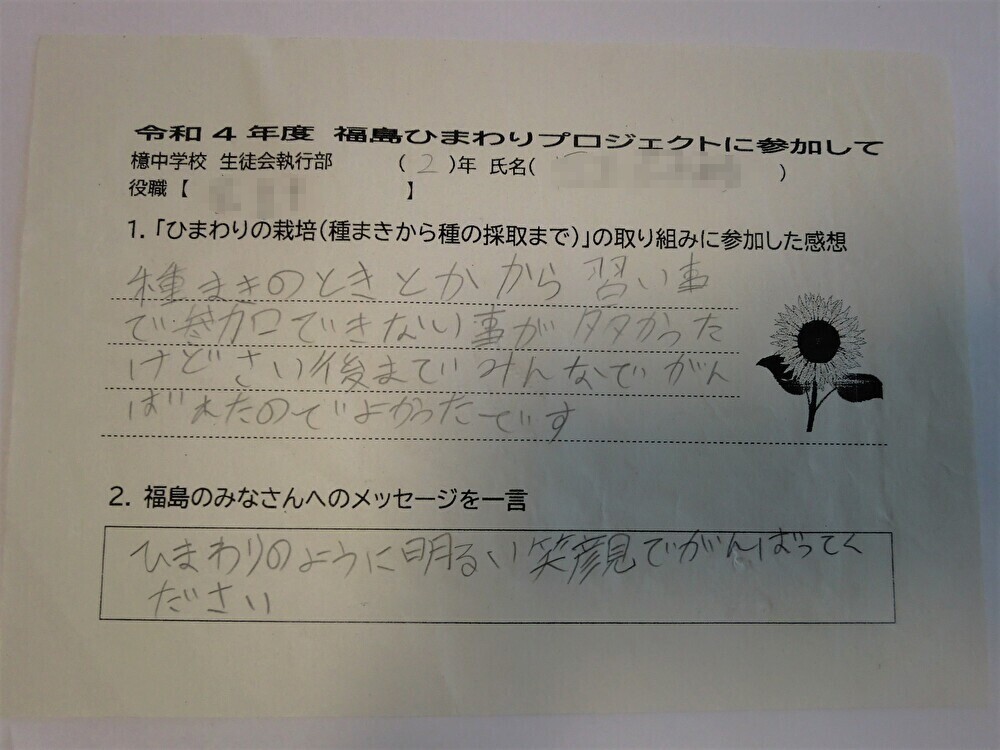 令和4年度 福島ひまわりプロジェクトに参加して
檍中学校 生徒会執行部 (2)年 氏名( )
役職【 】
1.「ひまわりの栽培(種まきから種の採取まで)」の取り組みに参加した感想
種まきのときとかから習い事
で参加できない事が多かった
けどさい後までみんなでがん
ばれたのでよかったです
2. 福島のみなさんへのメッセージを一言
ひまわりのように明るい笑顔でがんばってく
ださい